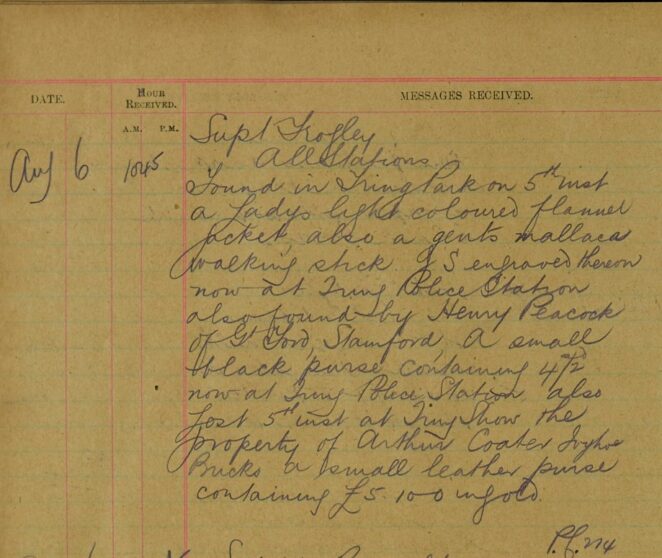 DATE.
HOUR RECEIVED.
MESSAGES RECEIVED.
A.M. P.M.
Aug 6
1045
Supt Frogley
All Stations
Found in Tring Park on 5th inst
a Ladys light coloured flannel
jacket, also a gents mallaca
walking stick J S engraved thereon
now at Tring Police Station
also found by Henry Peacock
of Gt Ford, Stamford, A small
black purse containing 4/2d
now at Tring Police Station, also
Lost 5th inst at Tring Show the
property of Arthur Coater Ivghoe
Bucks a small leather purse
containing £5.10.0 in gold.